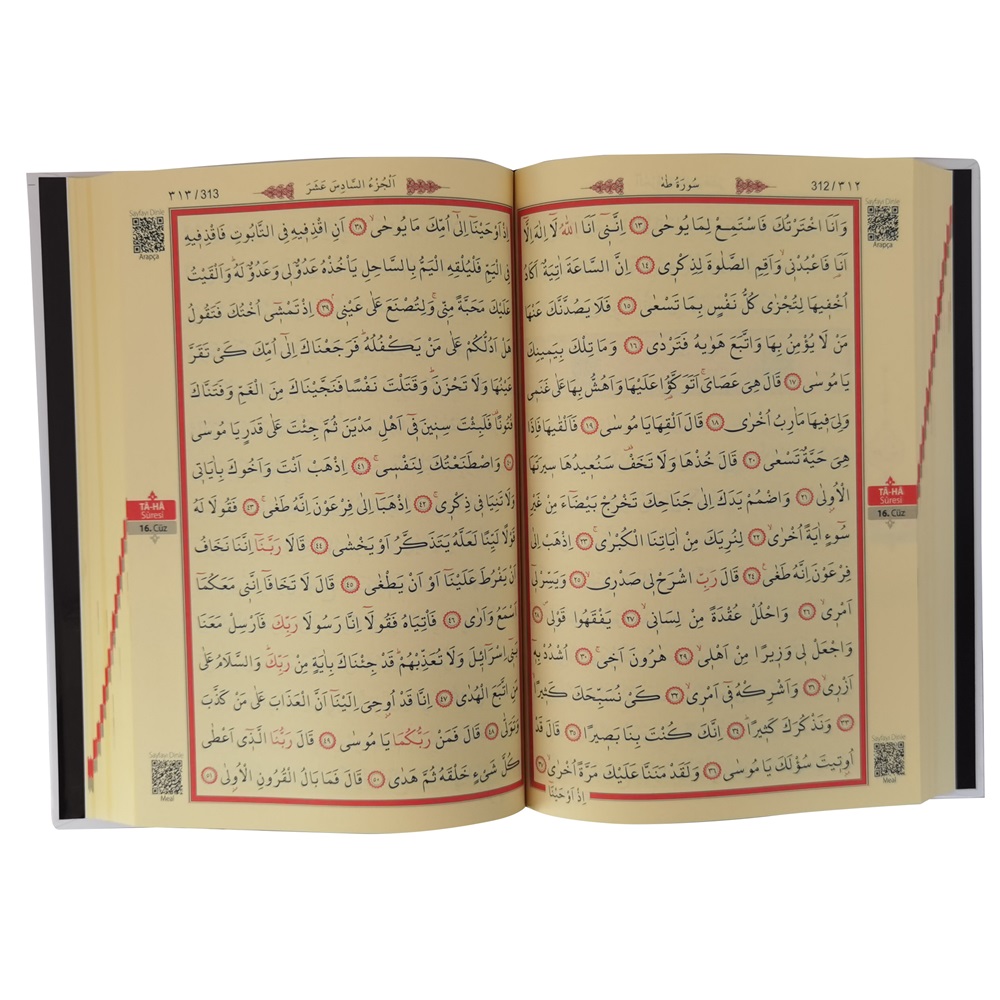 312/٣١٢
سُورَةُ طٰهٰ
وَاَنَا اخْتَرْتُكَ فَاسْتَمِعْ لِمَا يُوحٰى ﴿١٣﴾ اِنَّن۪ٓي اَنَا اللّٰهُ لَٓا اِلٰهَ اِلَّٓا
اَنَا۬ فَاعْبُدْن۪ي وَاَقِمِ الصَّلٰوةَ لِذِكْر۪ي ﴿١٤﴾ اِنَّ السَّاعَةَ اٰتِيَةٌ اَكَادُ
اُخْف۪يهَا لِتُجْزٰى كُلُّ نَفْسٍ بِمَا تَسْعٰى ﴿١٥﴾ فَلَا يَصُدَّنَّكَ عَنْهَا
مَنْ لَا يُؤْمِنُ بِهَا وَاتَّبَعَ هَوٰيهُ فَتَرْدٰى ﴿١٦﴾ وَمَا تِلْكَ بِيَم۪ينِكَ
يَا مُوسٰى ﴿١٧﴾ قَالَ هِيَ عَصَايَۚ اَتَوَكَّؤُ۬ا عَلَيْهَا وَاَهُشُّ بِهَا عَلٰى غَنَم۪ي
وَلِيَ ف۪يهَا مَاٰرِبُ اُخْرٰى ﴿١٨﴾ قَالَ اَلْقِهَا يَا مُوسٰى ﴿١٩﴾ فَاَلْقٰيهَا فَاِذَا
هِيَ حَيَّةٌ تَسْعٰى ﴿٢٠﴾ قَالَ خُذْهَا وَلَا تَخَفْ۠ سَنُع۪يدُهَا س۪يرَتَهَا
الْاُو۫لٰى ﴿٢١﴾ وَاضْمُمْ يَدَكَ اِلٰى جَنَاحِكَ تَخْرُجْ بَيْضَٓاءَ مِنْ غَيْرِ
سُٓوءٍ اٰيَةً اُخْرٰىۙ ﴿٢٢﴾ لِنُرِيَكَ مِنْ اٰيَاتِنَا الْكُبْرٰىۚ ﴿٢٣﴾ اِذْهَبْ اِلٰى
فِرْعَوْنَ اِنَّهُ طَغٰى۟ ﴿٢٤﴾ قَالَ رَبِّ اشْرَحْ ل۪ي صَدْر۪يۙ ﴿٢٥﴾ وَيَسِّرْ ل۪ٓي
اَمْر۪يۙ ﴿٢٦﴾ وَاحْلُلْ عُقْدَةً مِنْ لِسَان۪يۙ ﴿٢٧﴾ يَفْقَهُوا قَوْل۪يۖ ﴿٢٨﴾
وَاجْعَلْ ل۪ي وَز۪يرًا مِنْ اَهْل۪يۙ ﴿٢٩﴾ هٰرُونَ اَخ۪يۚ ﴿٣٠﴾ اُشْدُدْ بِه۪ٓ
اَزْر۪يۙ ﴿٣١﴾ وَاَشْرِكْهُ ف۪ٓي اَمْر۪يۙ ﴿٣٢﴾ كَيْ نُسَبِّحَكَ كَث۪يرًاۙ
﴿٣٣﴾ وَنَذْكُرَكَ كَث۪يرًاۜ ﴿٣٤﴾ اِنَّكَ كُنْتَ بِنَا بَص۪يرًا ﴿٣٥﴾ قَالَ قَدْ
اُو۫ت۪يتَ سُؤْلَكَ يَا مُوسٰى ﴿٣٦﴾ وَلَقَدْ مَنَنَّا عَلَيْكَ مَرَّةً اُخْرٰىۙ ﴿٣٧﴾
اِذْ اَوْحَيْنَٓا
Sayfayı Dinle
Arapça
TÂ-HÂ
Sûresi
16. Cüz
Sayfayı Dinle
Meal
٣١٣/313
اَلْجُزْءُ السَّادِسَ عَشَرَ
اِذْ اَوْحَيْنَٓا اِلٰٓى اُمِّكَ مَا يُوحٰىۙ ﴿٣٨﴾ اَنِ اقْذِف۪يهِ فِي التَّابُوتِ فَاقْذِف۪يهِ
فِي الْيَمِّ فَلْيُلْقِهِ الْيَمُّ بِالسَّاحِلِ يَأْخُذْهُ عَدُوٌّ ل۪ي وَعَدُوٌّ لَهُۜ وَاَلْقَيْتُ
عَلَيْكَ مَحَبَّةً مِنّ۪يۚ وَلِتُصْنَعَ عَلٰى عَيْن۪يۢ ﴿٣٩﴾ اِذْ تَمْش۪ٓي اُخْتُكَ فَتَقُولُ
هَلْ اَدُلُّكُمْ عَلٰى مَنْ يَكْفُلُهُۜ فَرَجَعْنَاكَ اِلٰٓى اُمِّكَ كَيْ تَقَرَّ
عَيْنُهَا وَلَا تَحْزَنَۜ وَقَتَلْتَ نَفْسًا فَنَجَّيْنَاكَ مِنَ الْغَمِّ وَفَتَنَّاكَ
فُتُونًا۠ فَلَبِثْتَ سِن۪ينَ ف۪ٓي اَهْلِ مَدْيَنَ ثُمَّ جِئْتَ عَلٰى قَدَرٍ يَا مُوسٰى
﴿٤٠﴾ وَاصْطَنَعْتُكَ لِنَفْس۪يۚ ﴿٤١﴾ اِذْهَبْ اَنْتَ وَاَخُوكَ بِاٰيَات۪ي
وَلَا تَنِيَا ف۪ي ذِكْر۪يۚ ﴿٤٢﴾ اِذْهَبَٓا اِلٰى فِرْعَوْنَ اِنَّهُ طَغٰىۚ ﴿٤٣﴾ فَقُولَا لَهُ
قَوْلًا لَيِّنًا لَعَلَّهُ يَتَذَكَّرُ اَوْ يَخْشٰى ﴿٤٤﴾ قَالَا رَبَّنَٓا اِنَّنَا نَخَافُ
اَنْ يَفْرُطَ عَلَيْنَٓا اَوْ اَنْ يَطْغٰى ﴿٤٥﴾ قَالَ لَا تَخَافَٓا اِنَّن۪ي مَعَكُمَٓا
اَسْمَعُ وَاَرٰى ﴿٤٦﴾ فَأْتِيَاهُ فَقُولَٓا اِنَّا رَسُولَا رَبِّكَ فَاَرْسِلْ مَعَنَا
بَن۪ٓي اِسْرَٓائ۪لَ وَلَا تُعَذِّبْهُمْۜ قَدْ جِئْنَاكَ بِاٰيَةٍ مِنْ رَبِّكَۜ وَالسَّلَامُ عَلٰى
مَنِ اتَّبَعَ الْهُدٰى ﴿٤٧﴾ اِنَّا قَدْ اُو۫حِيَ اِلَيْنَٓا اَنَّ الْعَذَابَ عَلٰى مَنْ كَذَّبَ
وَتَوَلّٰى ﴿٤٨﴾ قَالَ فَمَنْ رَبُّكُمَا يَا مُوسٰى ﴿٤٩﴾ قَالَ رَبُّنَا الَّذ۪ٓي اَعْطٰى
كُلَّ شَيْءٍ خَلْقَهُ ثُمَّ هَدٰى ﴿٥٠﴾ قَالَ فَمَا بَالُ الْقُرُونِ الْاُو۫لٰى ﴿٥١﴾
Sayfayı Dinle
Arapça
TÂ-HÂ
Sûresi
16. Cüz
Sayfayı Dinle
Meal